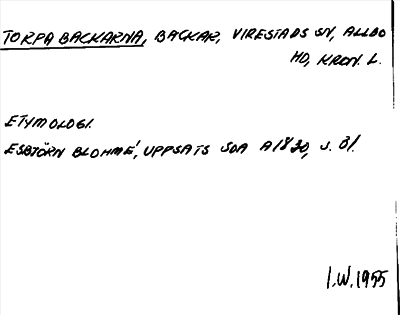 TORPA BACKARNA, BACKAR, VIRESTADS SN, ALLBO
HD, KRON. L.
ETYMOLOGI.
ESBJÖRN BLOHMÉ, UPPSATS SOA A1830, S. 31.
I.W. 1955